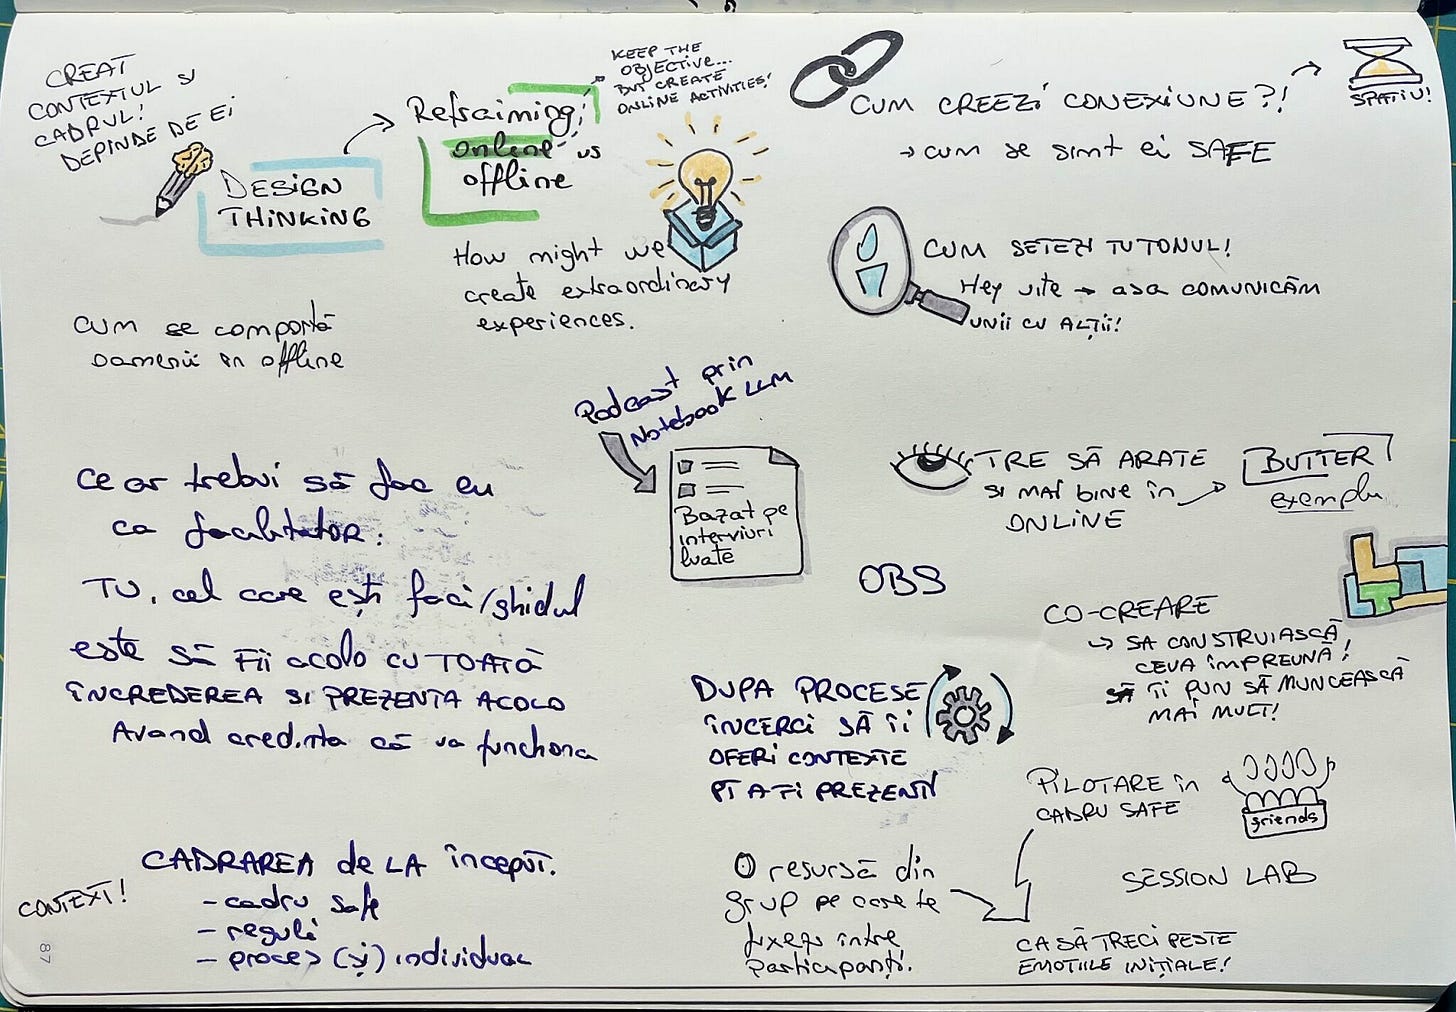 CREAT
CONTEXTUL SI
CADRUL!
DEPINDE DE EI
DESIGN
THINKING
Refraiming;
online vs
offline
KEEP THE
OBJECTIVE...
BUT CREATE
ONLINE ACTIVITIES!
How might we
create extraordinary
experiences.
CUM se comportă
oamenii în offline
CUM CREEZI CONEXIUNE?!
SPATIU!
→ cum se simt ei SAFE
CUM SETEZI TU TONUL!
Hey uite → asa COMUNICĂM
UNII CU ALȚII!
Podcast prin
Notebook LLM
Bazat pe
interviuri
luate
TRE SĂ ARATE
SI MAI BINE în
ONLINE
BUTTER
exemplu
OBS
Ce ar trebui să fac eu
ca facilitator:
TU, cel care ești faci/ghidul
este să FII acolo cu TOATĂ
ÎNCREDEREA SI PREZENTA ACOLO
Avand credinta că va funchona
CO-CREARE
↳ SA CONSTRUIASCĂ
CEVA ÎMPREUNĂ!
SĂ ÎI PUN SĂ MUNCEASCĂ
MAI MULT!
DUPA PROCESE
ÎNCERCI SĂ ÎI
OFERI CONTEXTE
PT A FI PREZENTI
PILOTARE în
CADRU SAFE
friends
SESSION LAB
CONTEXT!
CADRAREA de LA început.
- cadru safe
- reguli
- proces (și) individual
O resursă din
grup pe care te
fixezi între
participanți.
CA SĂ TRECI PESTE
EMOTIILE INIȚIALE!
87